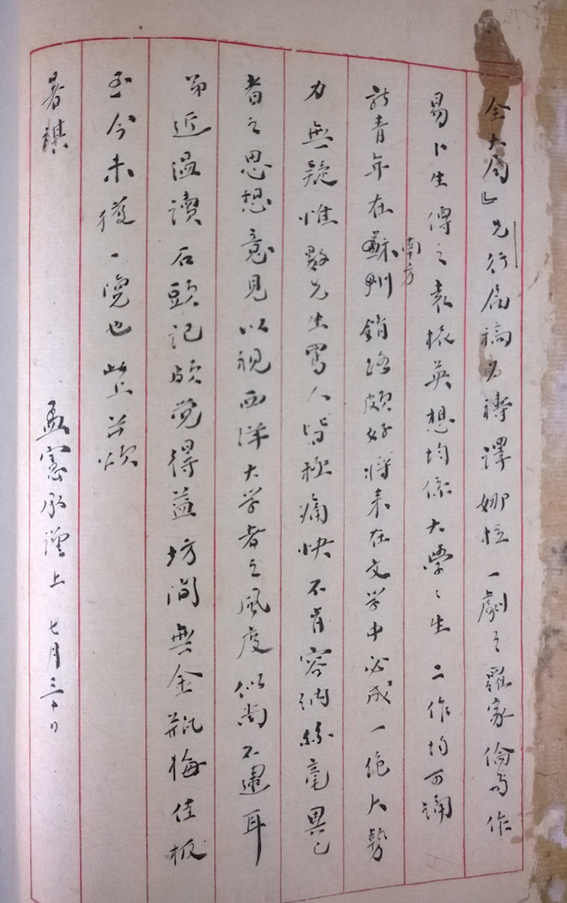 全大局」先行屬稿 為譯娜拉一劇之羅家倫與作
易卜生傳之袁振英想均係大學之生 二作均可誦
新青年在蘇州南方銷路頗好將來在文學中必成一絕大勢
力無疑惟數先生罵人皆極痛快不肯容納絲毫異己
者之思想意見以視西洋大學者之風度似尚不逮耳
弟近溫讀石頭記頗覺得益坊間無金瓶梅佳板
至今未獲一覽也 此上並頌
暑祺
孟憲承謹上 七月三十日